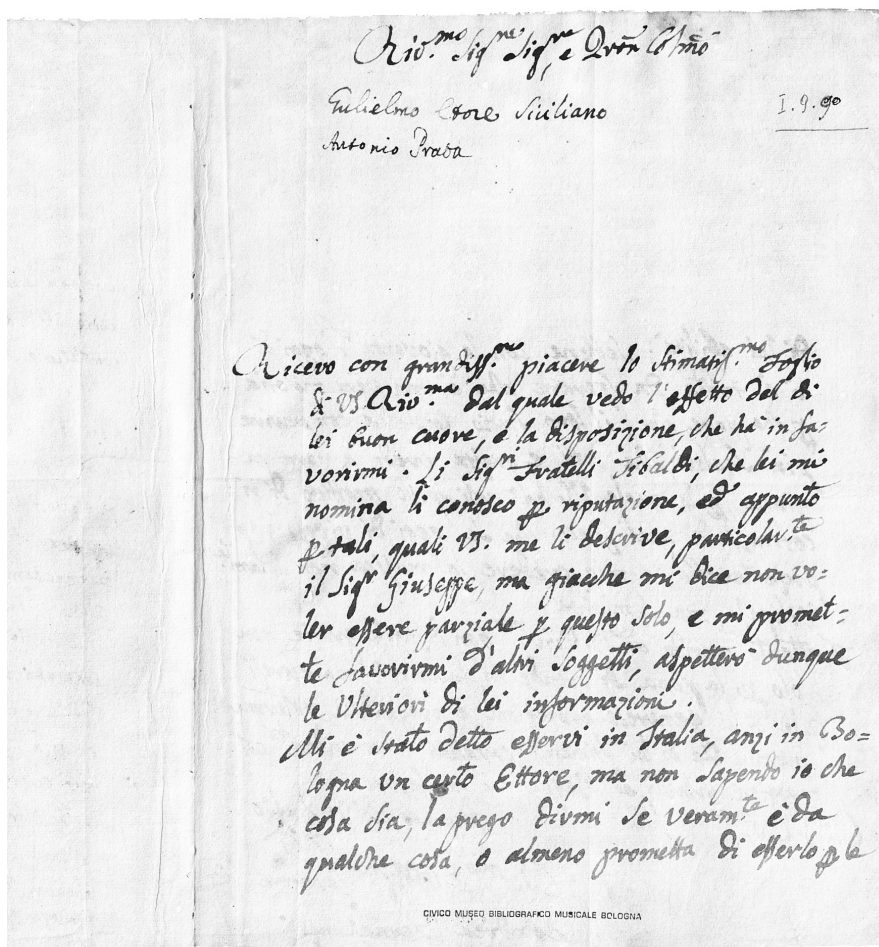 Riv.mo Sig.ne Sig.re, e Pron Colmo
Gulielmo Etore Siciliano
Antonio Prada
I.9.90
Ricevo con grandiss.mo piacere lo stimatiss.mo Foglio
di VS Riv.ma dal quale vedo l'effetto del di
lei buon cuore, e la disposizione, che hà in fa-
vorirmi. Li Sig.ri Fratelli Tibaldi, che lei mi
nomina li conosco p riputazione, ed appunto
p tali, quali VS. me li descrive, particolar.te
il Sig.r Giuseppe, ma giacche mi dice non vo=
ler essere parziale p questo solo, e mi promet-
te favorirmi d'altri Soggetti, aspetterò dunque
le Ulteriori di lei informazioni.
Mi è stato detto esservi in Italia, anzi in Bo=
logna un certo Ettore, ma non sapendo io che
cosa sia, la prego dirmi se veram.te è da
qualche cosa, o almeno prometta di esserlo p le
CIVICO MUSEO BIBLIOGRAFICO MUSICALE BOLOGNA